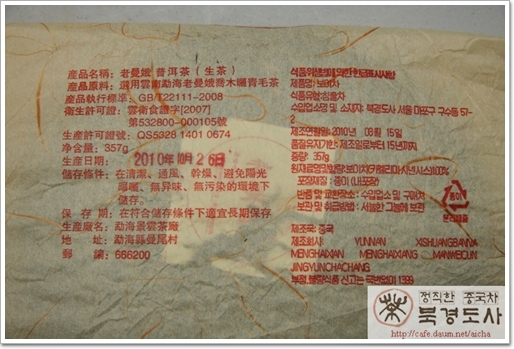 產品名稱: 老曼娥 普洱茶(生茶)
產品原料: 選用雲南勐海老曼娥喬木曬青毛茶
產品執行標準: GB/T22111-2008
衛生許可證: 雲衛食證字[2007]
第532800-000105號
生產許可證號: QS5328 1401 0674
净含量: 357g
生產日期: 2010年10月26日
儲存條件: 在清潔、通風、幹燥、避免陽光
無异味、無污染的環境下
儲存。
保 存 期: 在符合儲存條件下適宜長期保存
生產廠名: 勐海景雲茶廠
地 址: 勐海縣曼尾村
郵 編: 666200
식품위생법에 의한 한글표시사항
제품명: 보이차
식품유형: 침출차
수입업소명 및 소재지: 북경도사 서울 마포구 구수동 57-
2
제조연월일: 2010년 08월 15일
품질유지기한: 제조일로부터 15년까지
중량: 357g
원재료명및함량: 보이차(카멜리아시넨시스)100%
포장재질: 종이 (내포장)
반품 및 교환장소: 수입업소 및 구매처
보관 및 취급방법: 서늘한 그늘에 보관
제조국: 중국
제조회사: YUNNAN XISHUANGBANNA
MENGHAIXIAN MENGHAIXIANG MANWEICUN
JINGYUNCHACHANG
부정,불량식품 신고는 국번없이 1399
종이
분리배출
정직한 중국차
북경도사
http://cafe.daum.net/aicha